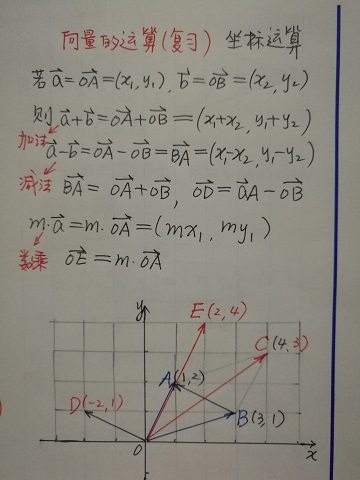 向量的运算(复习) 坐标运算
若 a⃗=OA⃗=(x₁,y₁), b⃗=OB⃗=(x₂,y₂)
则 a⃗+b⃗=OA⃗+OB⃗=(x₁+x₂,y₁+y₂)
加法
a⃗-b⃗=OA⃗-OB⃗=BA⃗=(x₁-x₂,y₁-y₂)
减法 BA⃗=OA⃗+OB⃗, OD⃗=aA⃗-OB⃗
m·a⃗=m·OA⃗=(mx₁, my₁)
数乘 OE⃗=m·OA⃗
y
E(2,4)
C(4,3)
A(1,2)
D(-2,1)
B(3,1)
O
x